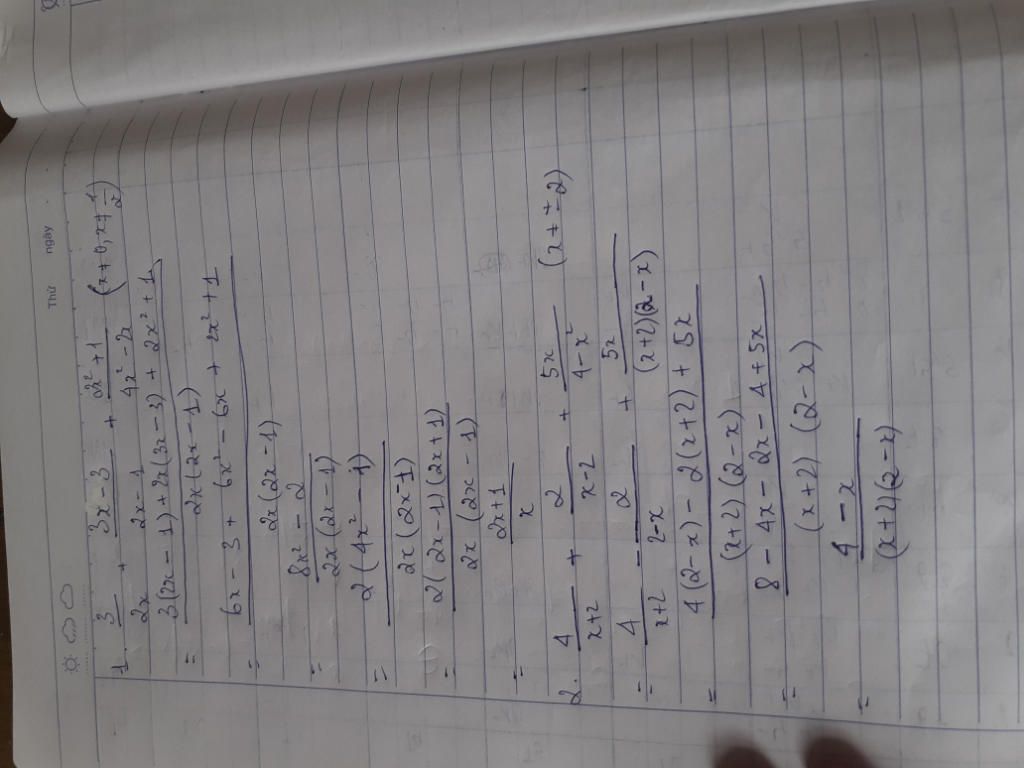 Thứ
ngày
1. 3/2x + (3x-3)/(2x-1) + (2x²+1)/(4x²-2x) (x≠0, x≠1/2)
= (3(2x-1)+2x(3x-3)+2x²+1)/(2x(2x-1))
= (6x-3+6x²-6x+2x²+1)/(2x(2x-1))
= (8x²-2)/(2x(2x-1))
= (2(4x²-1))/(2x(2x-1))
= (2(2x-1)(2x+1))/(2x(2x-1))
= (2x+1)/x
2. 4/(x+2) + 2/(x-2) + 5x/(4-x²) (x≠±2)
= 4/(x+2) - 2/(2-x) + 5x/((x+2)(2-x))
= (4(2-x)-2(x+2)+5x)/((x+2)(2-x))
= (8-4x-2x-4+5x)/((x+2)(2-x))
= (4-x)/((x+2)(2-x))